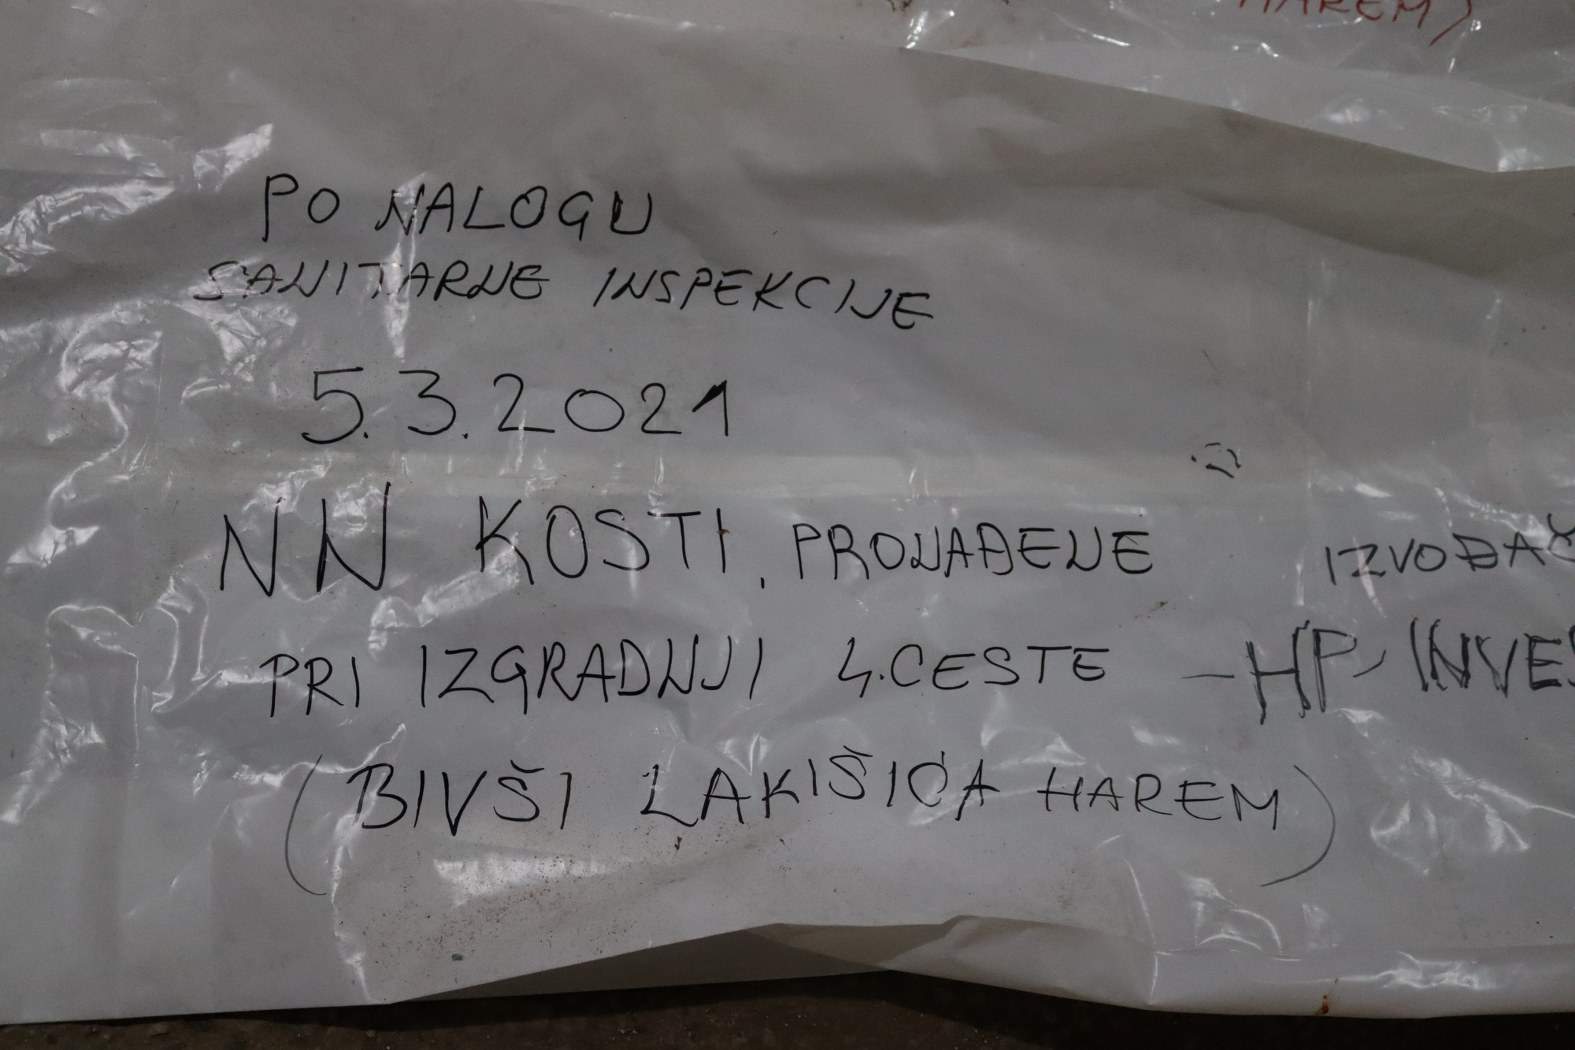 HAREM)
PO NALOGU
SANITARNE INSPEKCIJE
5.3.2021
NN KOSTI, PRONAĐENE
IZVOĐAČ
PRI IZGRADNJI 4.CESTE - HP INVES
(BIVŠI LAKIŠIĆA HAREM)